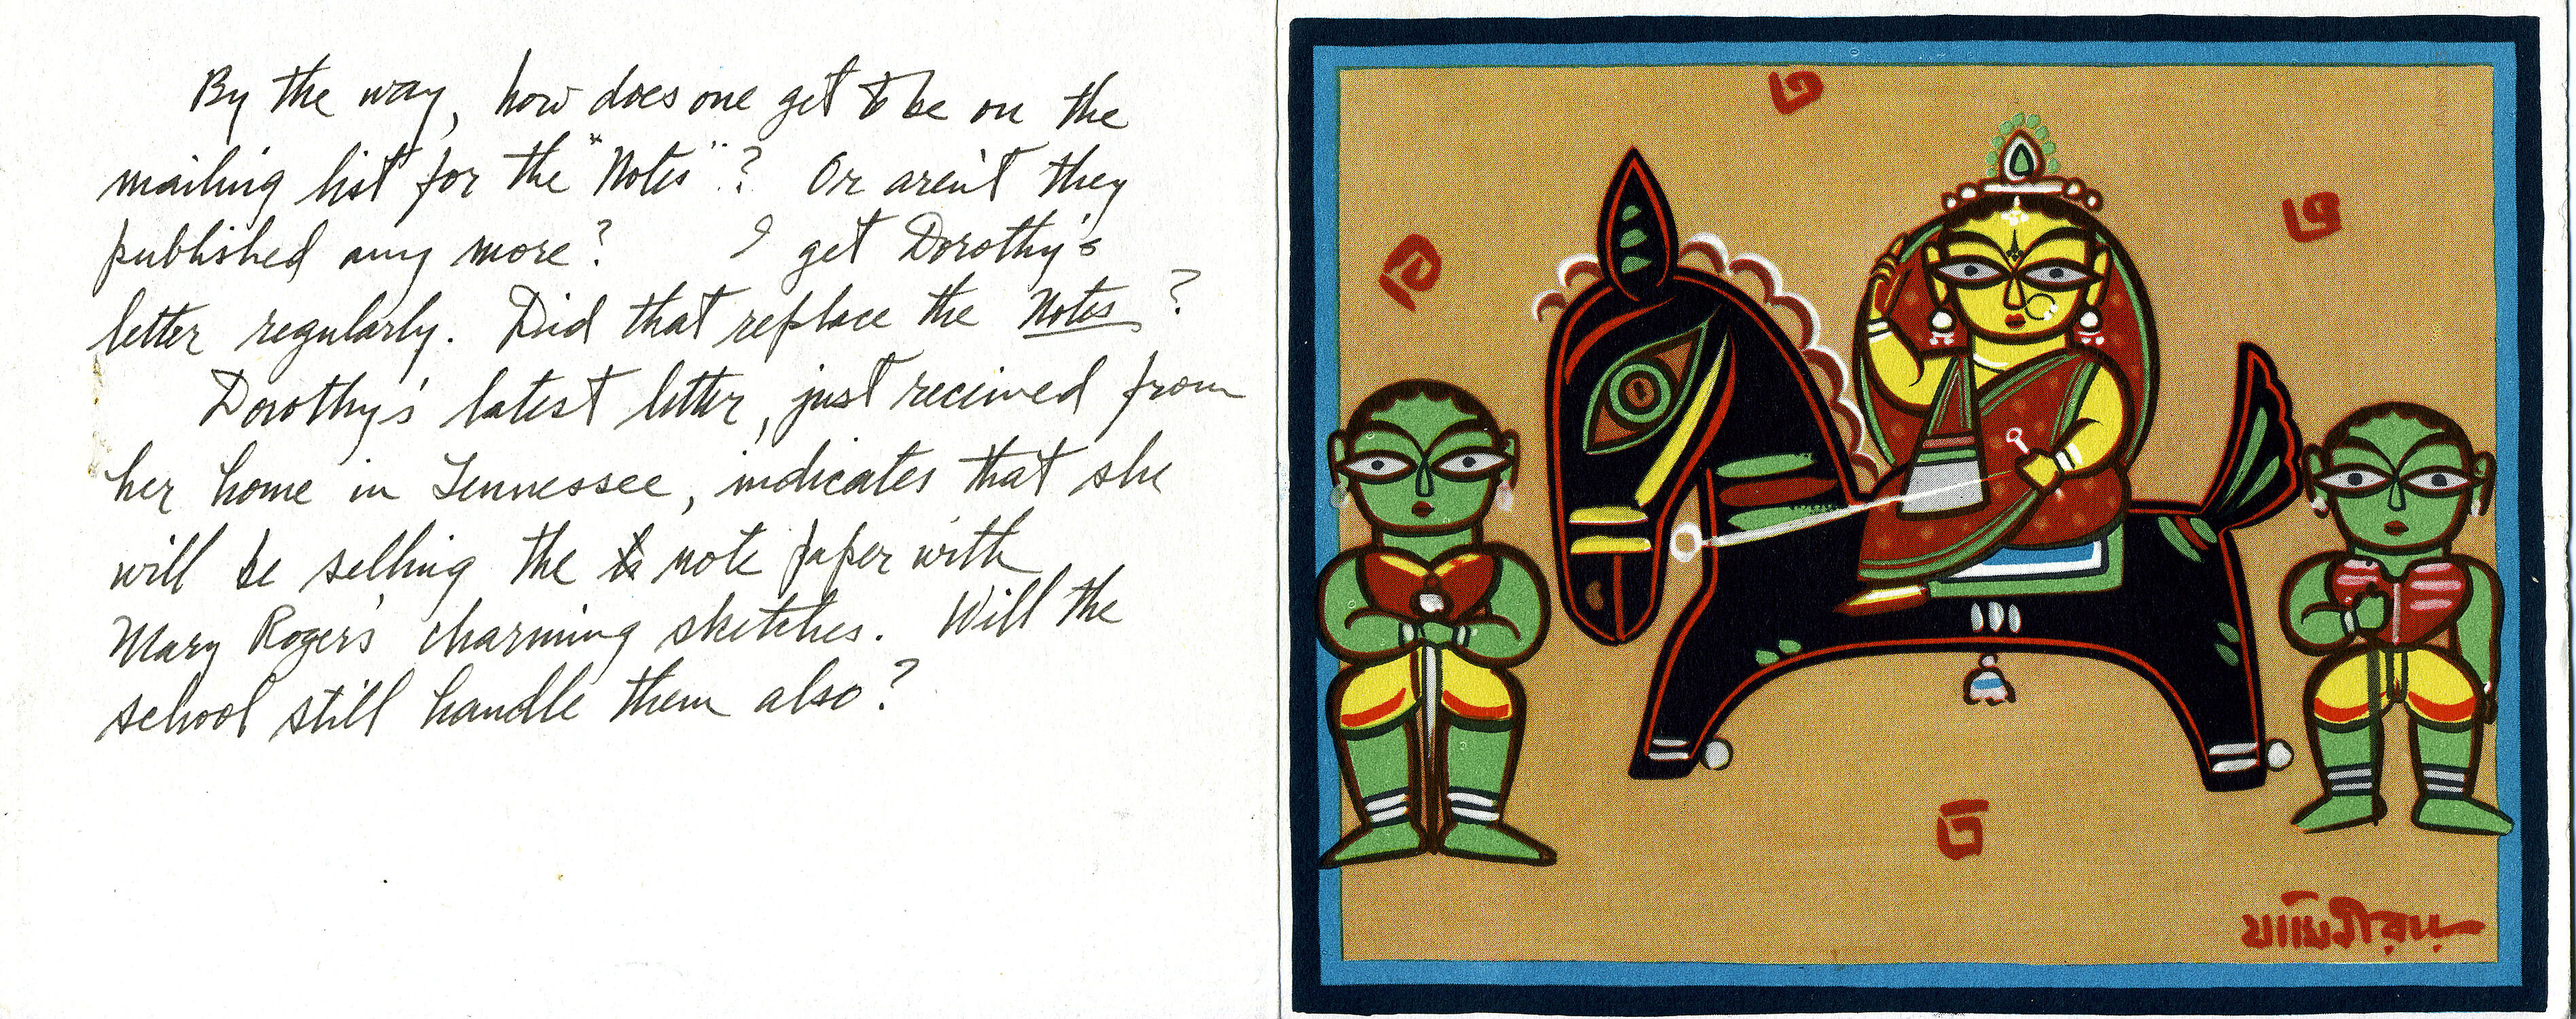 By the way, how does one get to be on the
mailing list for the "Notes"? Or aren't they
published any more? I get Dorothy's
letter regularly. Did that replace the Notes?
Dorothy's latest letter, just received from
her home in Tennessee, indicates that she
will be selling the note paper with
Mary Rogers' charming sketches. Will the
school still handle them also?
যামিনী রায়